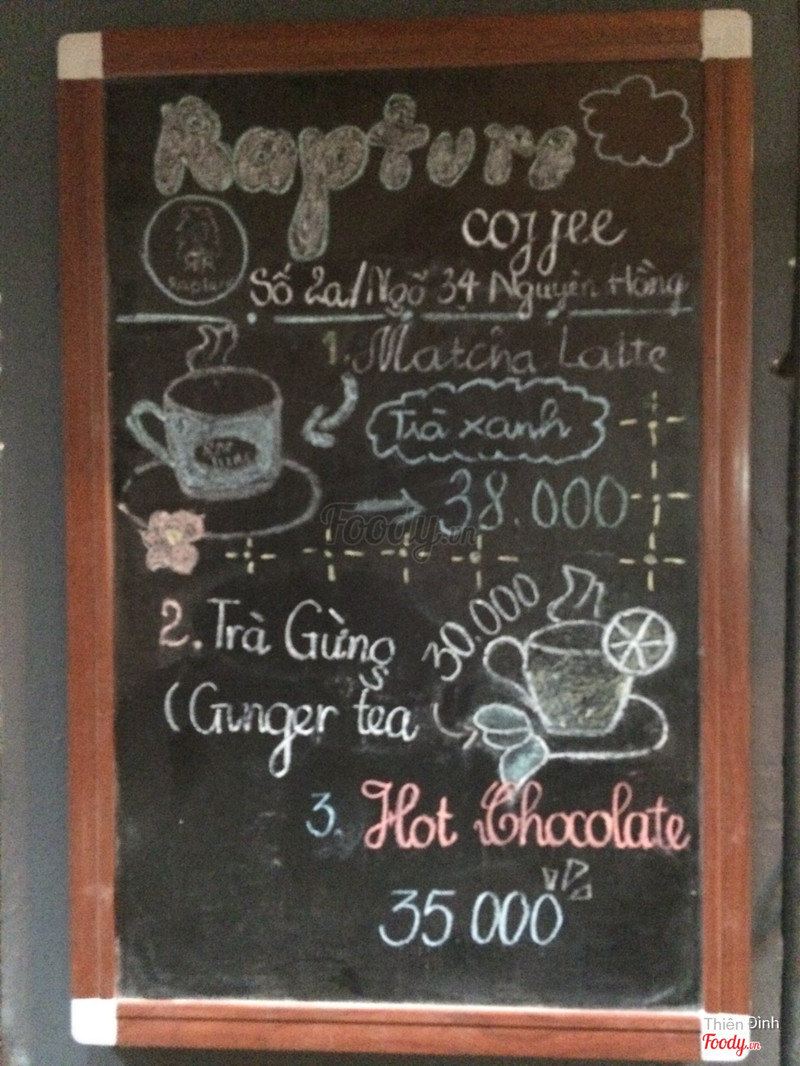 Rapture
coffee
Rapture
Số 2a/Ngõ 34 Nguyên Hồng
1. Matcha Latte
Trà xanh
38.000
Foody.vn
2. Trà Gừng
30.000
(Ginger tea
3. Hot Chocolate
35 000
Thiên Đình
Foody.vn